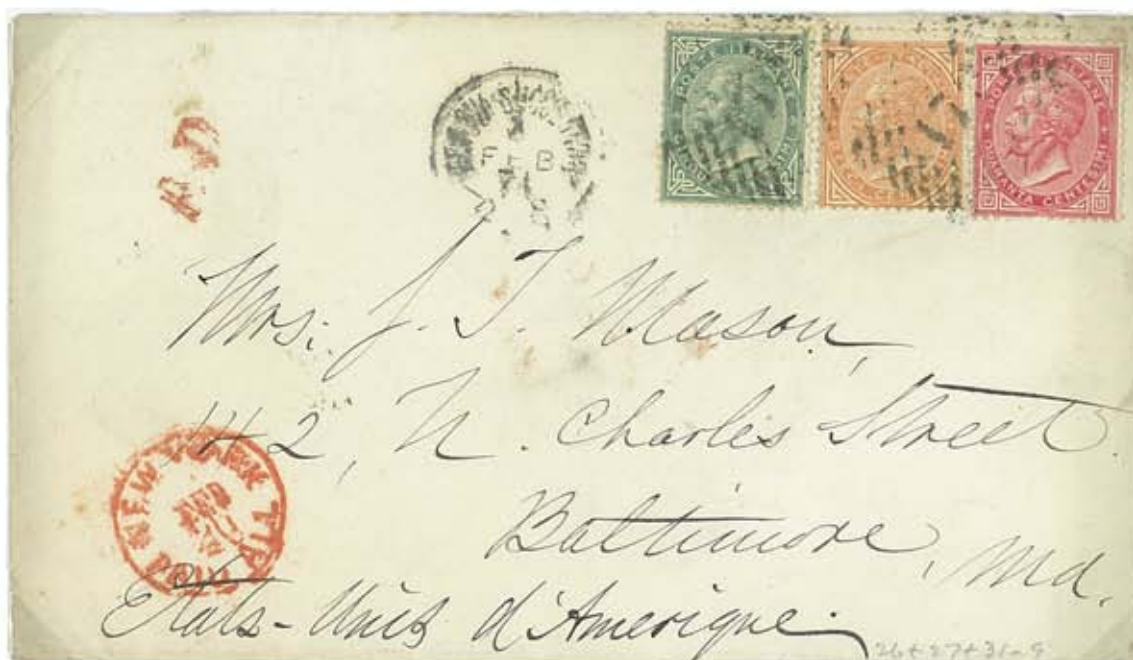 POSTE ITALIANE
QUARANTA CENTESIMI
FEB
P.D.
Mrs. J. T. Mason,
142, N. Charles Street
Baltimore, Md.
Etats-Unis d'Amerique.
NEW YORK
26+27+31-9